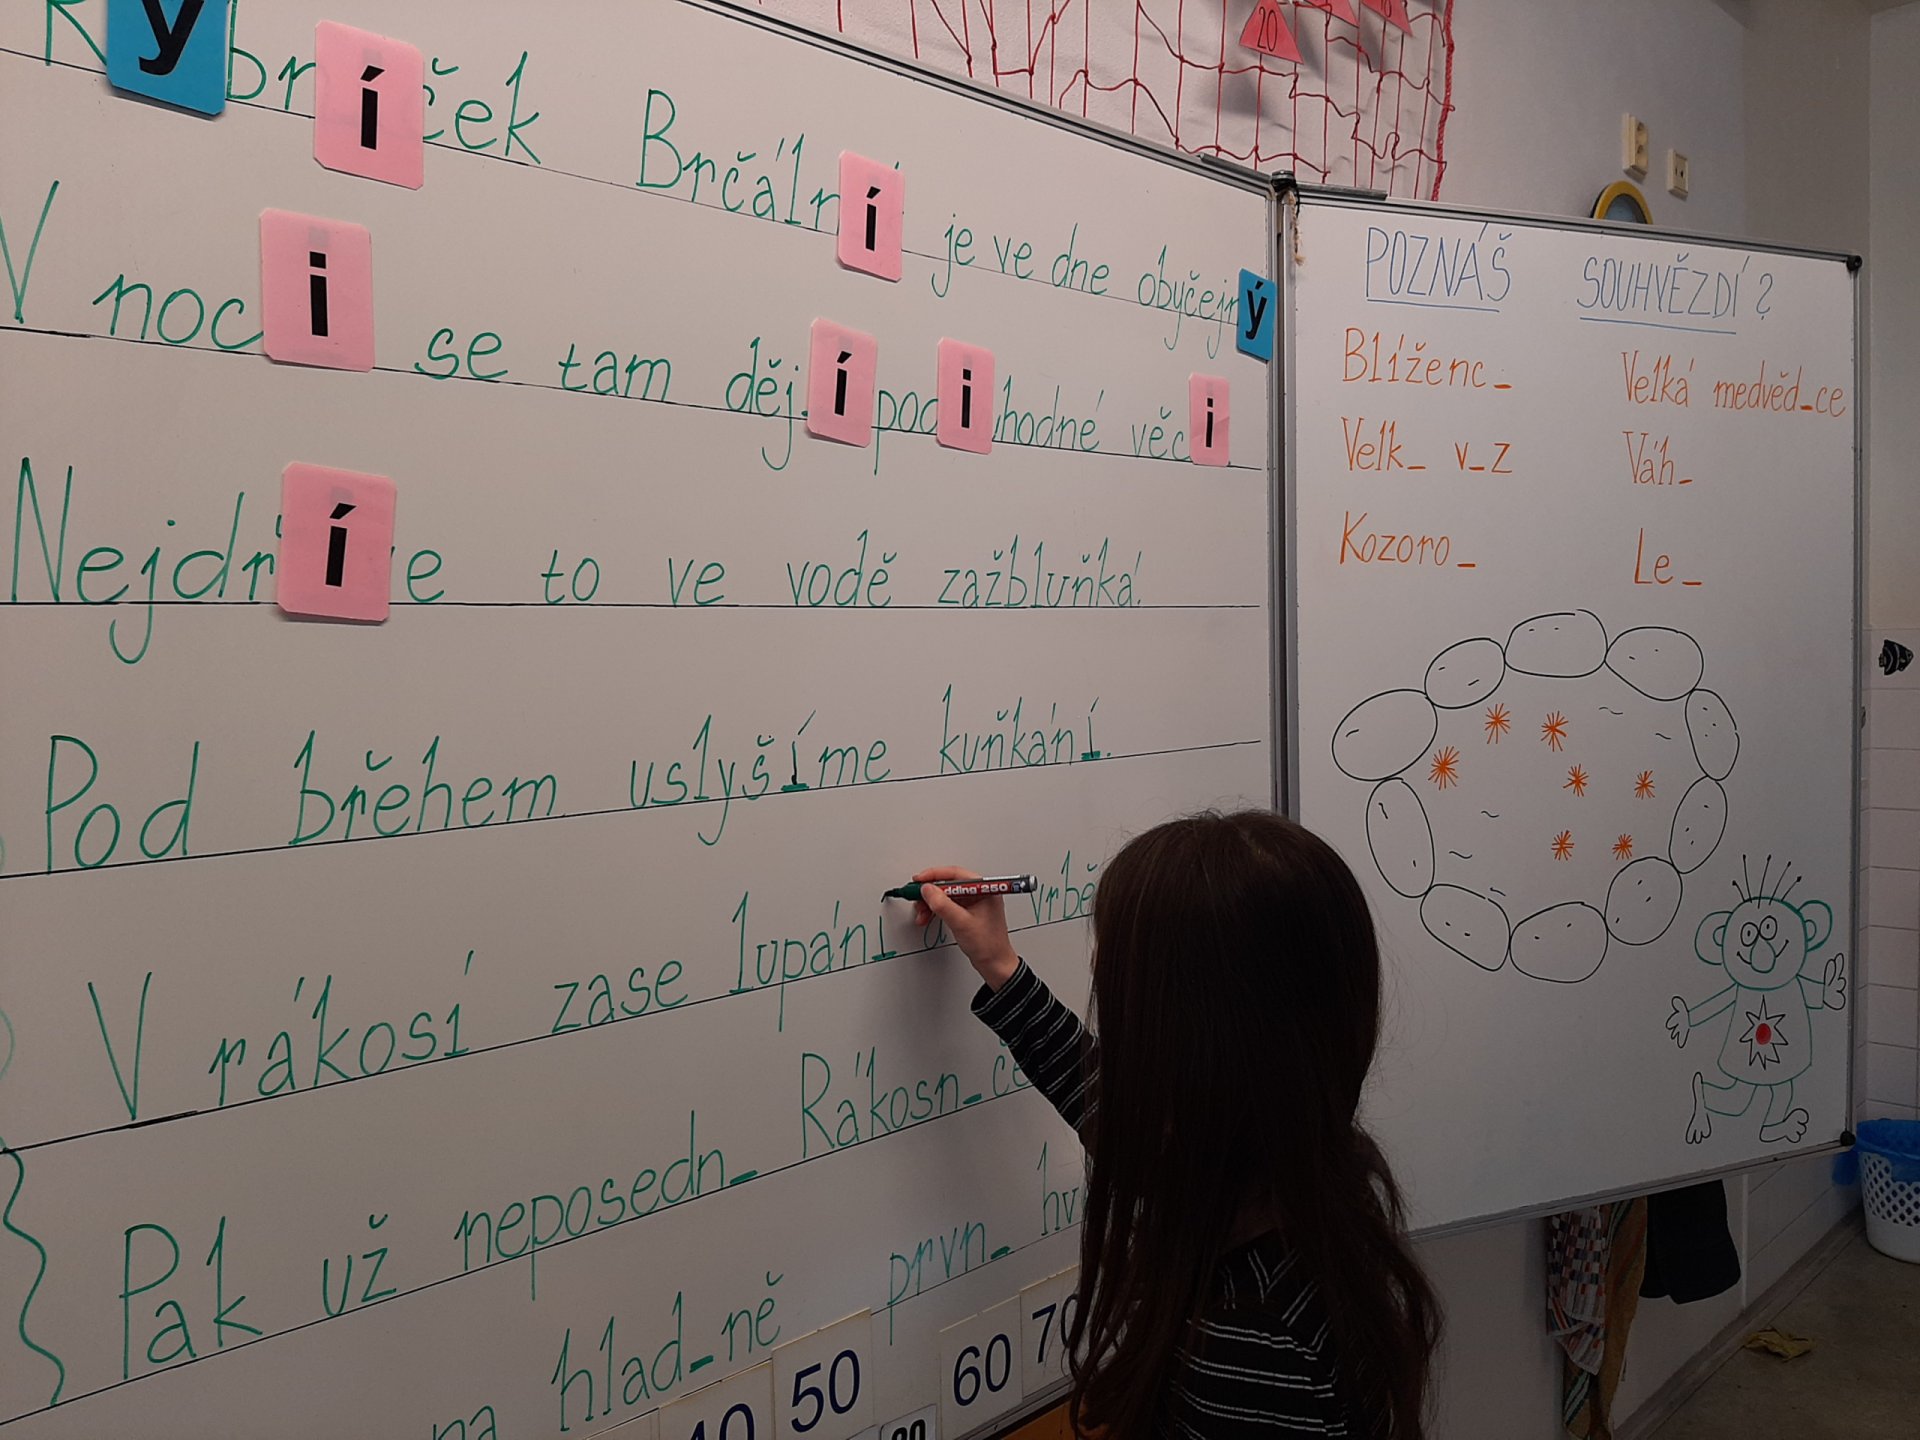 Rybníček Brčální je ve dne obyčejný
V noci se tam dějí podivhodné věci.
Nejdříve to ve vodě zažbluňká.
Pod břehem uslyšíme kuňkání.
V rákosí zase lupání a vrbě
Pak už neposedn_ Rákosn_če
na hlad_ně prvn_ hv
40 50 60 70
20
POZNÁŠ SOUHVĚZDÍ?
Blíženc_ Velká medvěd_ce
Velk_ v_z Váh_
Kozoro_ Le_
edding 250